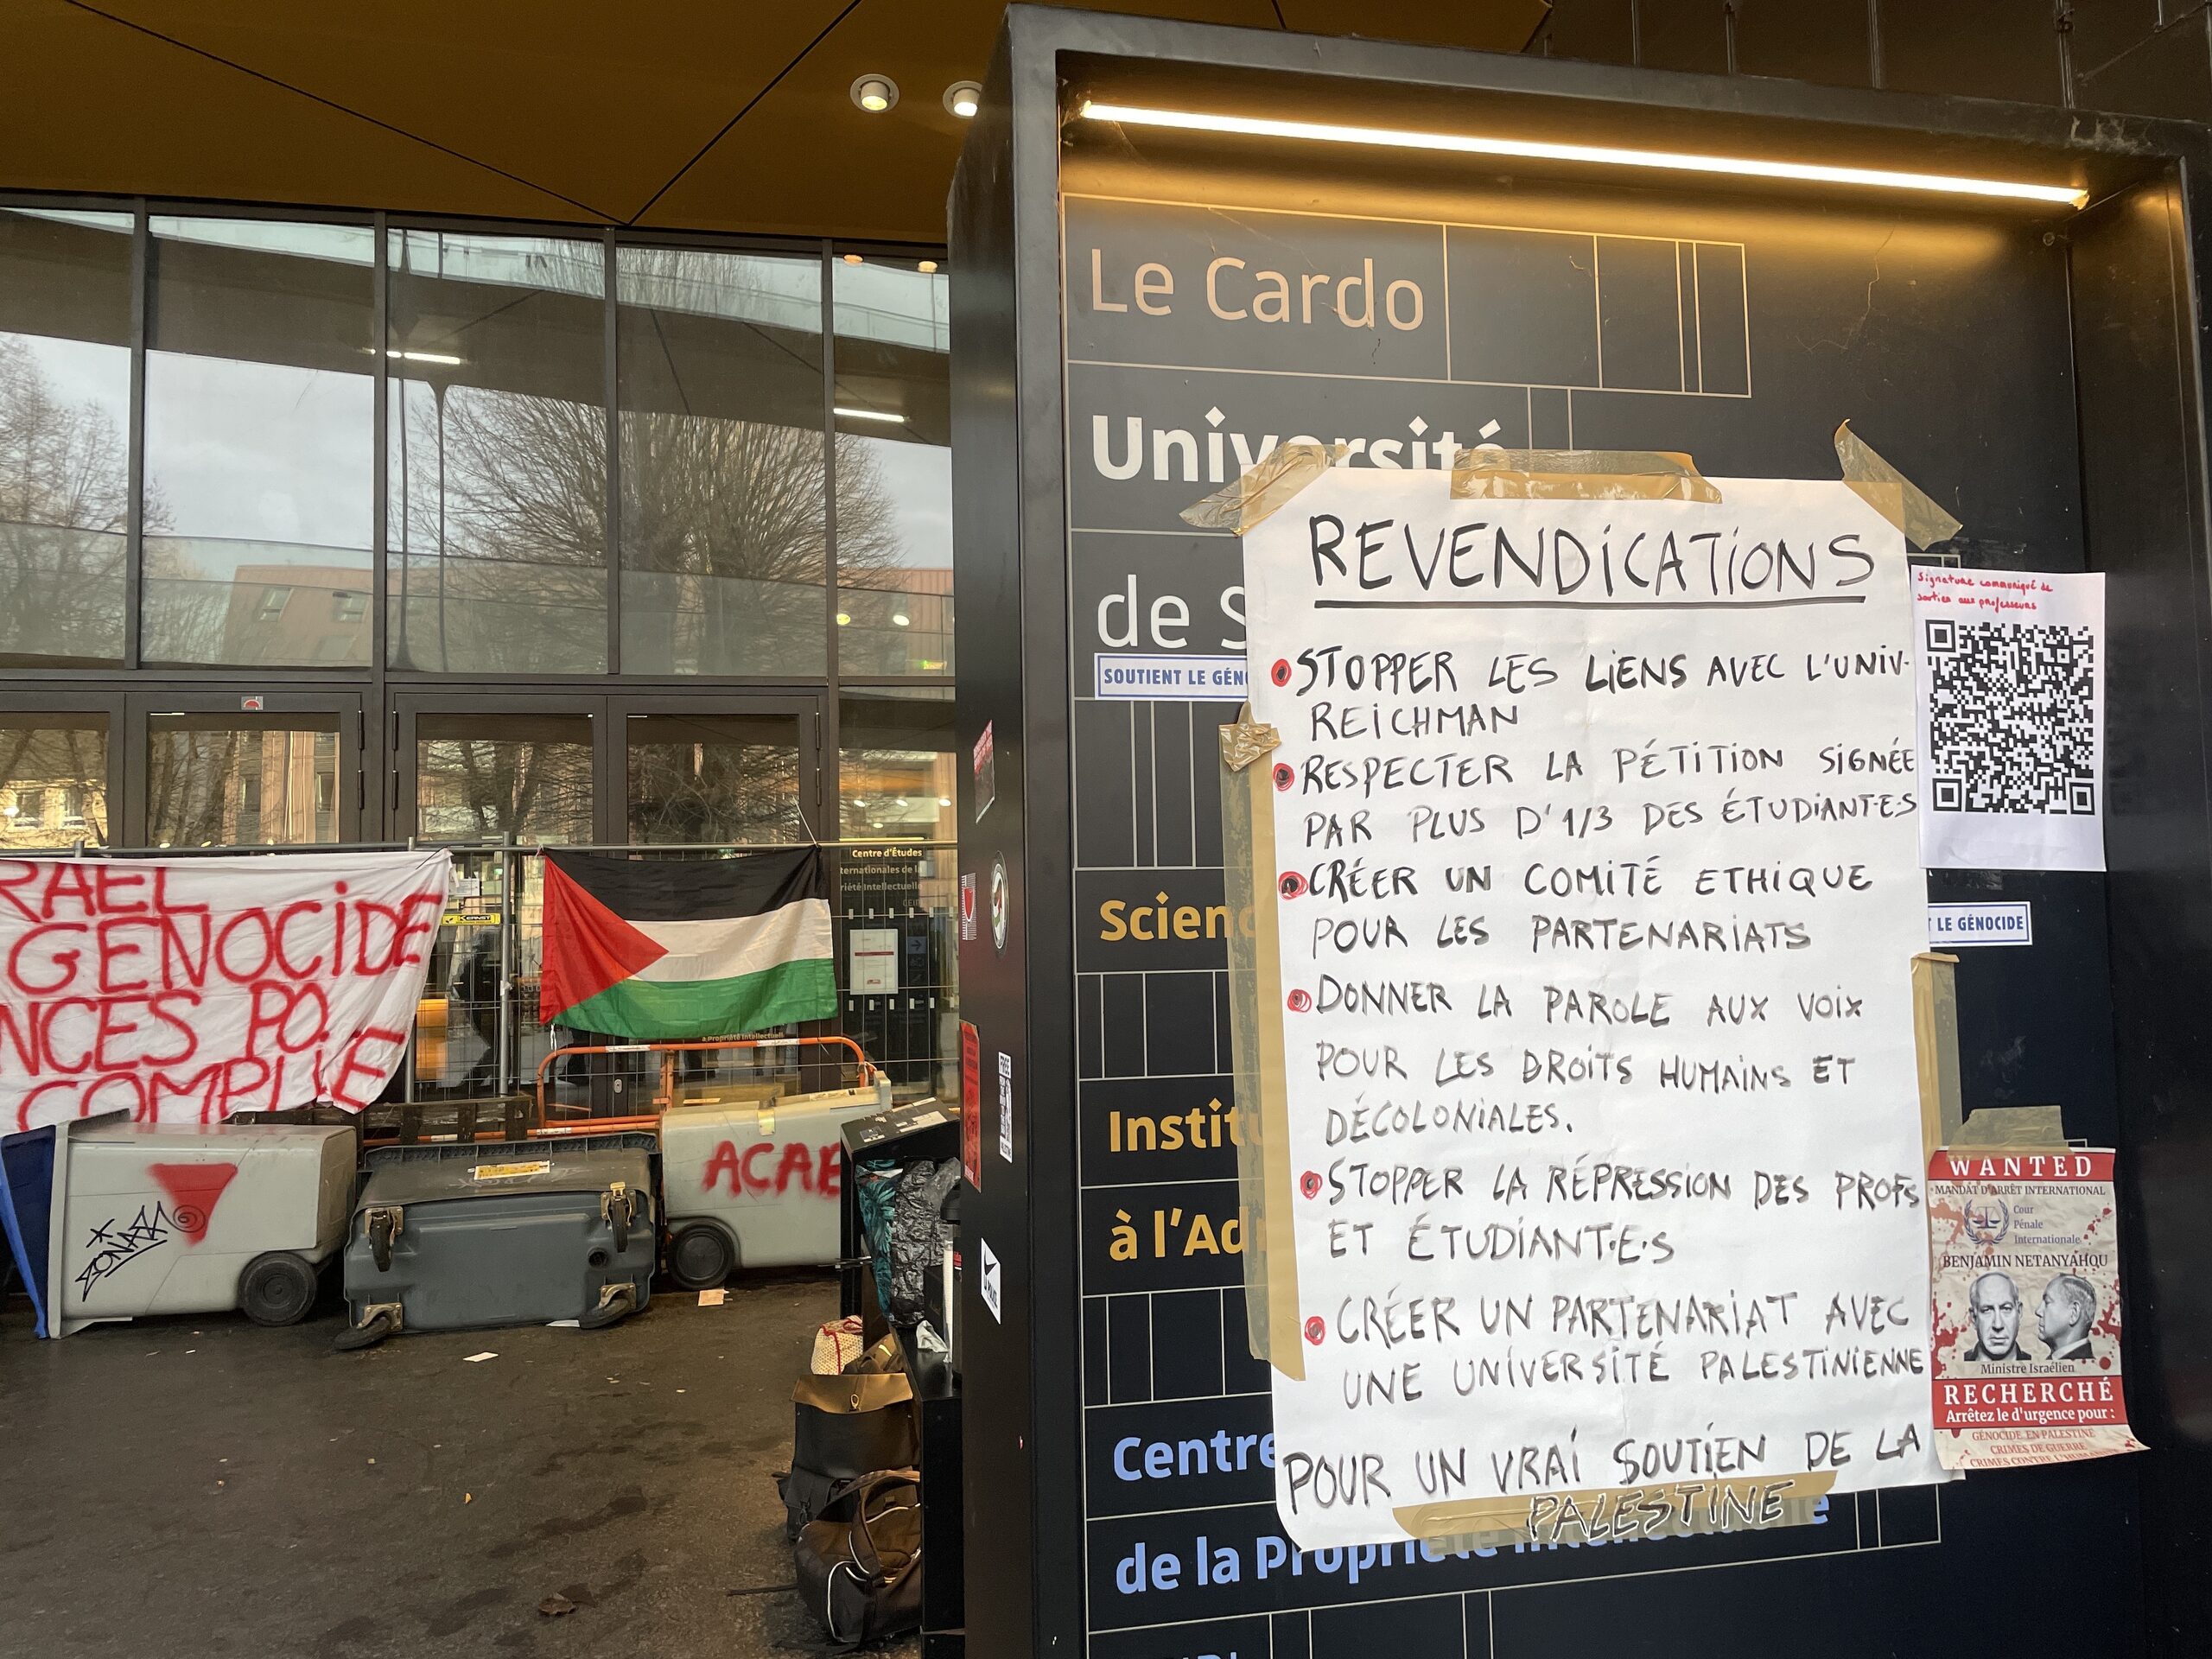 Le Cardo
Université
de S
SOUTIENT LE GÉNO
Scien
Institu
à l'Ad
Centre
de la Propriété Intellectuelle
REVENDiCATiONS
STOPPER LES LiENS AVEC L'UNiV.
REiCHMAN
RESPECTER LA PÉTiTiON SiGNÉE
PAR PLUS D'1/3 DES ÉTUDiANT·E·S
CRÉER UN COMiTÉ ETHiQUE
POUR LES PARTENARiATS
DONNER LA PAROLE AUX VOiX
POUR LES DROiTS HUMAiNS ET
DÉCOLONiALES.
STOPPER LA RÉPRESSiON DES PROFS
ET ÉTUDiANT·E·S
CRÉER UN PARTENARiAT AVEC
UNE UNiVERSiTÉ PALESTiNiENNE
POUR UN VRAi SOUTiEN DE LA
PALESTiNE
Signature communiqué de
soutien aux professeurs
T LE GÉNOCIDE
WANTED
MANDAT D'ARRÊT INTERNATIONAL
Cour
Pénale
Internationale
BENJAMIN NETANYAHOU
Ministre Israélien
RECHERCHÉ
Arrêtez le d'urgence pour :
GÉNOCIDE EN PALESTINE
CRIMES DE GUERRE
CRIMES CONTRE L'HUMANITÉ
RAEL
GENOCiDE
NCES PO
COMPLiE
Centre d'Études
ternationales de la
riété Intellectuelle
CEIPI
à Propriété Intellectuel
ACAB